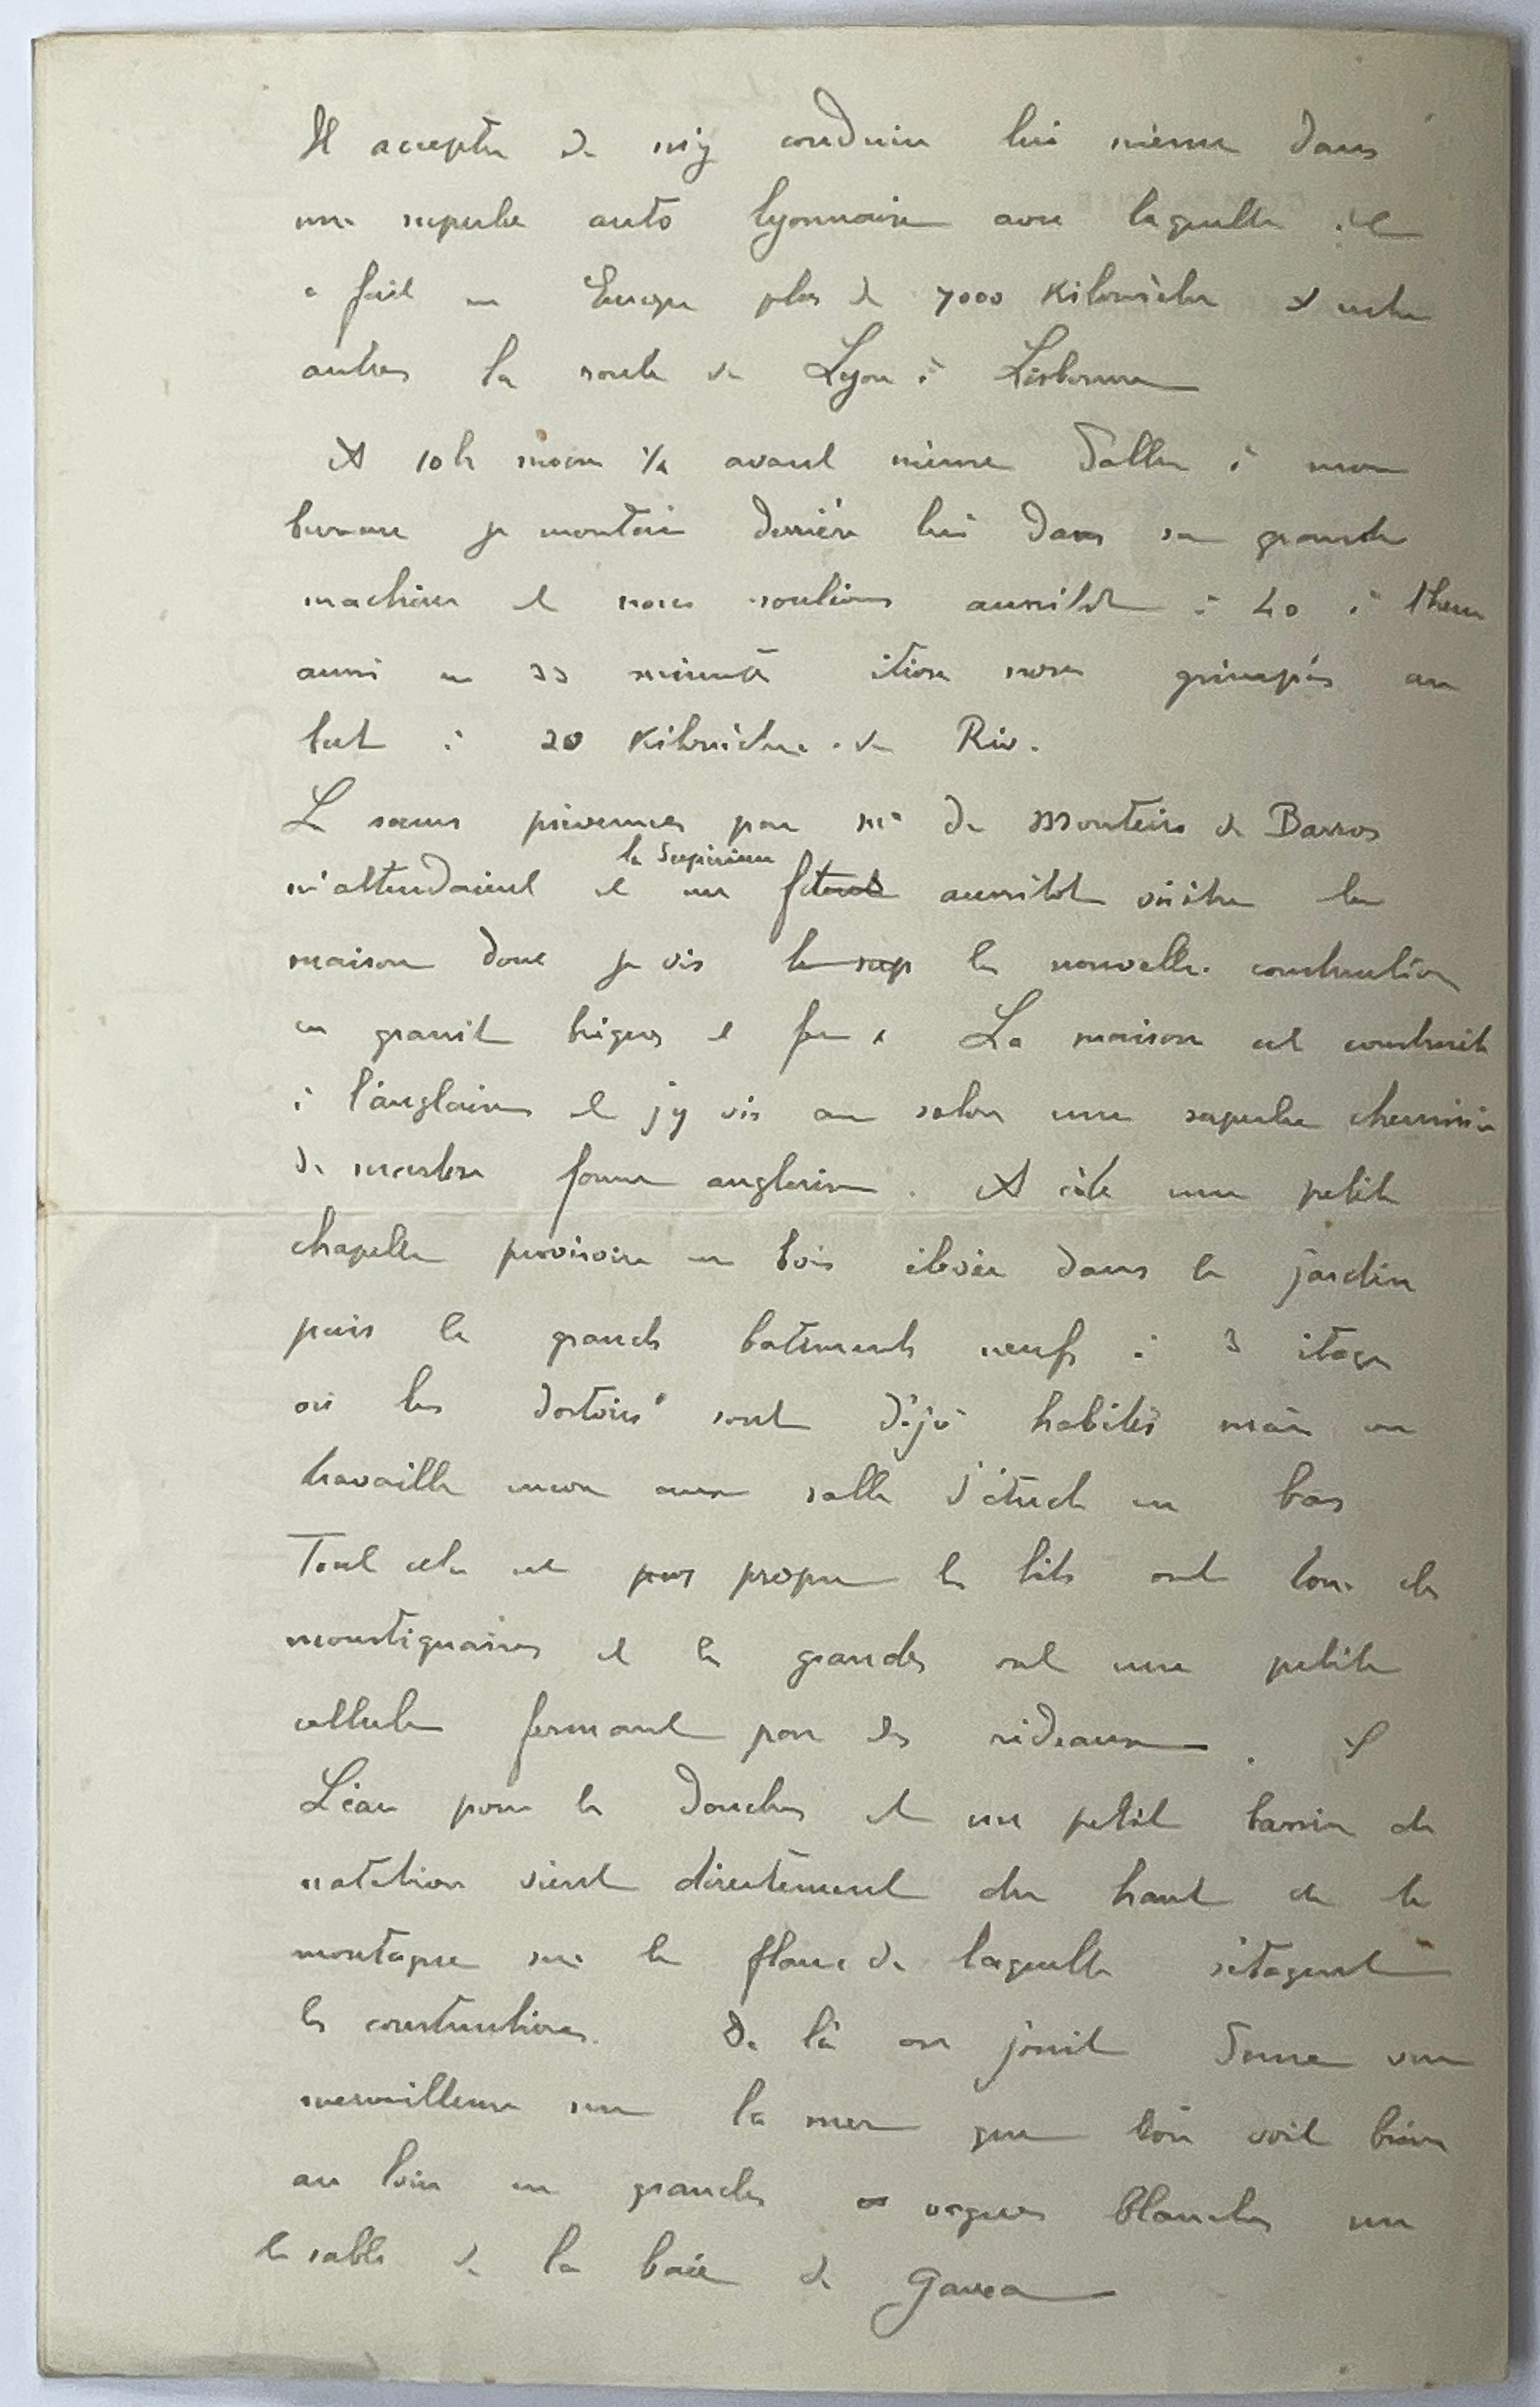 Il accepta de m'y conduire lui même dans
une superbe auto lyonnaise avec laquelle il
a fait en Europe plus de 7000 Kilomètres & entre
autres la route de Lyon à Lisbonne
A 10h moins 1/4 avant même d'aller à mon
bureau je montais derrière lui dans sa grande
machine et nous roulions aussitôt à 40 à l'heure
aussi en 33 minutes étions nous grimpés au
but à 20 Kilomètres de Rio.
Les sœurs prévenues par Mr de Monteiro de Barros
la Supérieure
m'attendaient et me fit aussitôt visiter la
maison donc je vis le sup les nouvelles constructions
en granit briques et fer. La maison est construite
à l'anglaise et j'y vis au salon une superbe cheminée
de marbre forme anglaise. A côté une petite
chapelle provisoire en bois élevée dans le jardin
puis les grands batiments neufs à 3 étages
où les dortoirs sont déjà habités mais on
travaille encore aux salles d'étude en bas
Tout cela est propre les lits ont tous des
moustiquaires et les grandes ont une petite
cellule fermant par des rideaux.
L'eau pour les douches et un petit bassin de
natation vient directement du haut de la
montagne sur le flanc de laquelle s'étagent
les constructions. De là on jouit d'une vue
merveilleuse sur la mer que l'on voit briser
au loin en grandes vagues blanches sur
le sable de la baie de Gavea